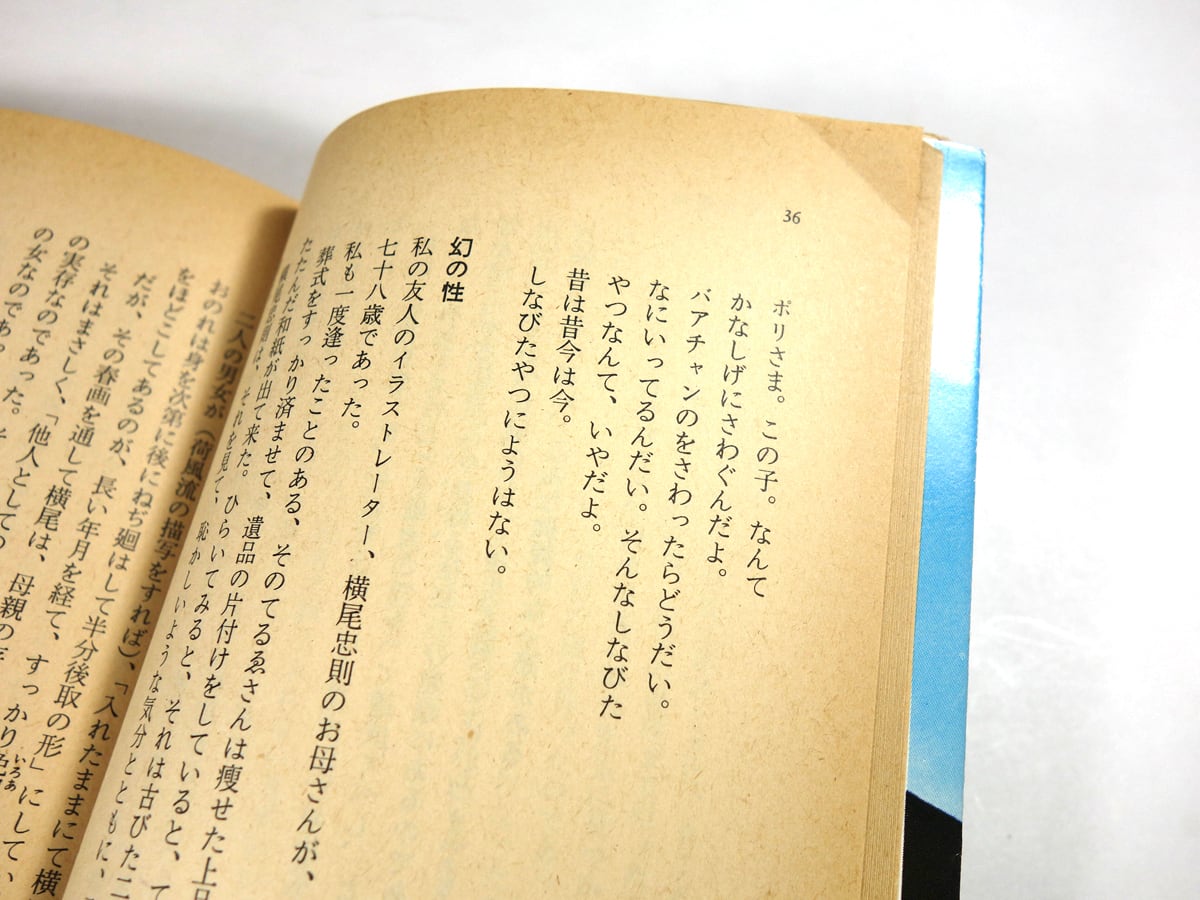 36
ポリさま。この子。なんて
かなしげにさわぐんだよ。
バアチャンのをさわったらどうだい。
なにいってるんだい。そんなしなびた
やつなんて、いやだよ。
昔は昔今は今。
しなびたやつにようはない。
幻の性
私の友人のイラストレーター、横尾忠則のお母さんが、
七十八歳であった。
私も一度逢ったことのある、そのてるゑさんは痩せた上品
葬式をすっかり済ませて、遺品の片付けをしていると、て
たたんだ和紙が出て来た。ひらいてみると、それは古びた二
横尾忠則は、それを見て、恥かしいような気分とともに、
二人の男女が(荷風流の描写をすれば)、「入れたままにて横
おのれは身を次第に後にねぢ廻はして半分後取の形」にして、
をほどこしてあるのが、長い年月を経て、すっかり
だが、その春画を通して横尾は、母親の
それはまさしく、「他人としての
の実存なのであった。そ
の女なのであっ